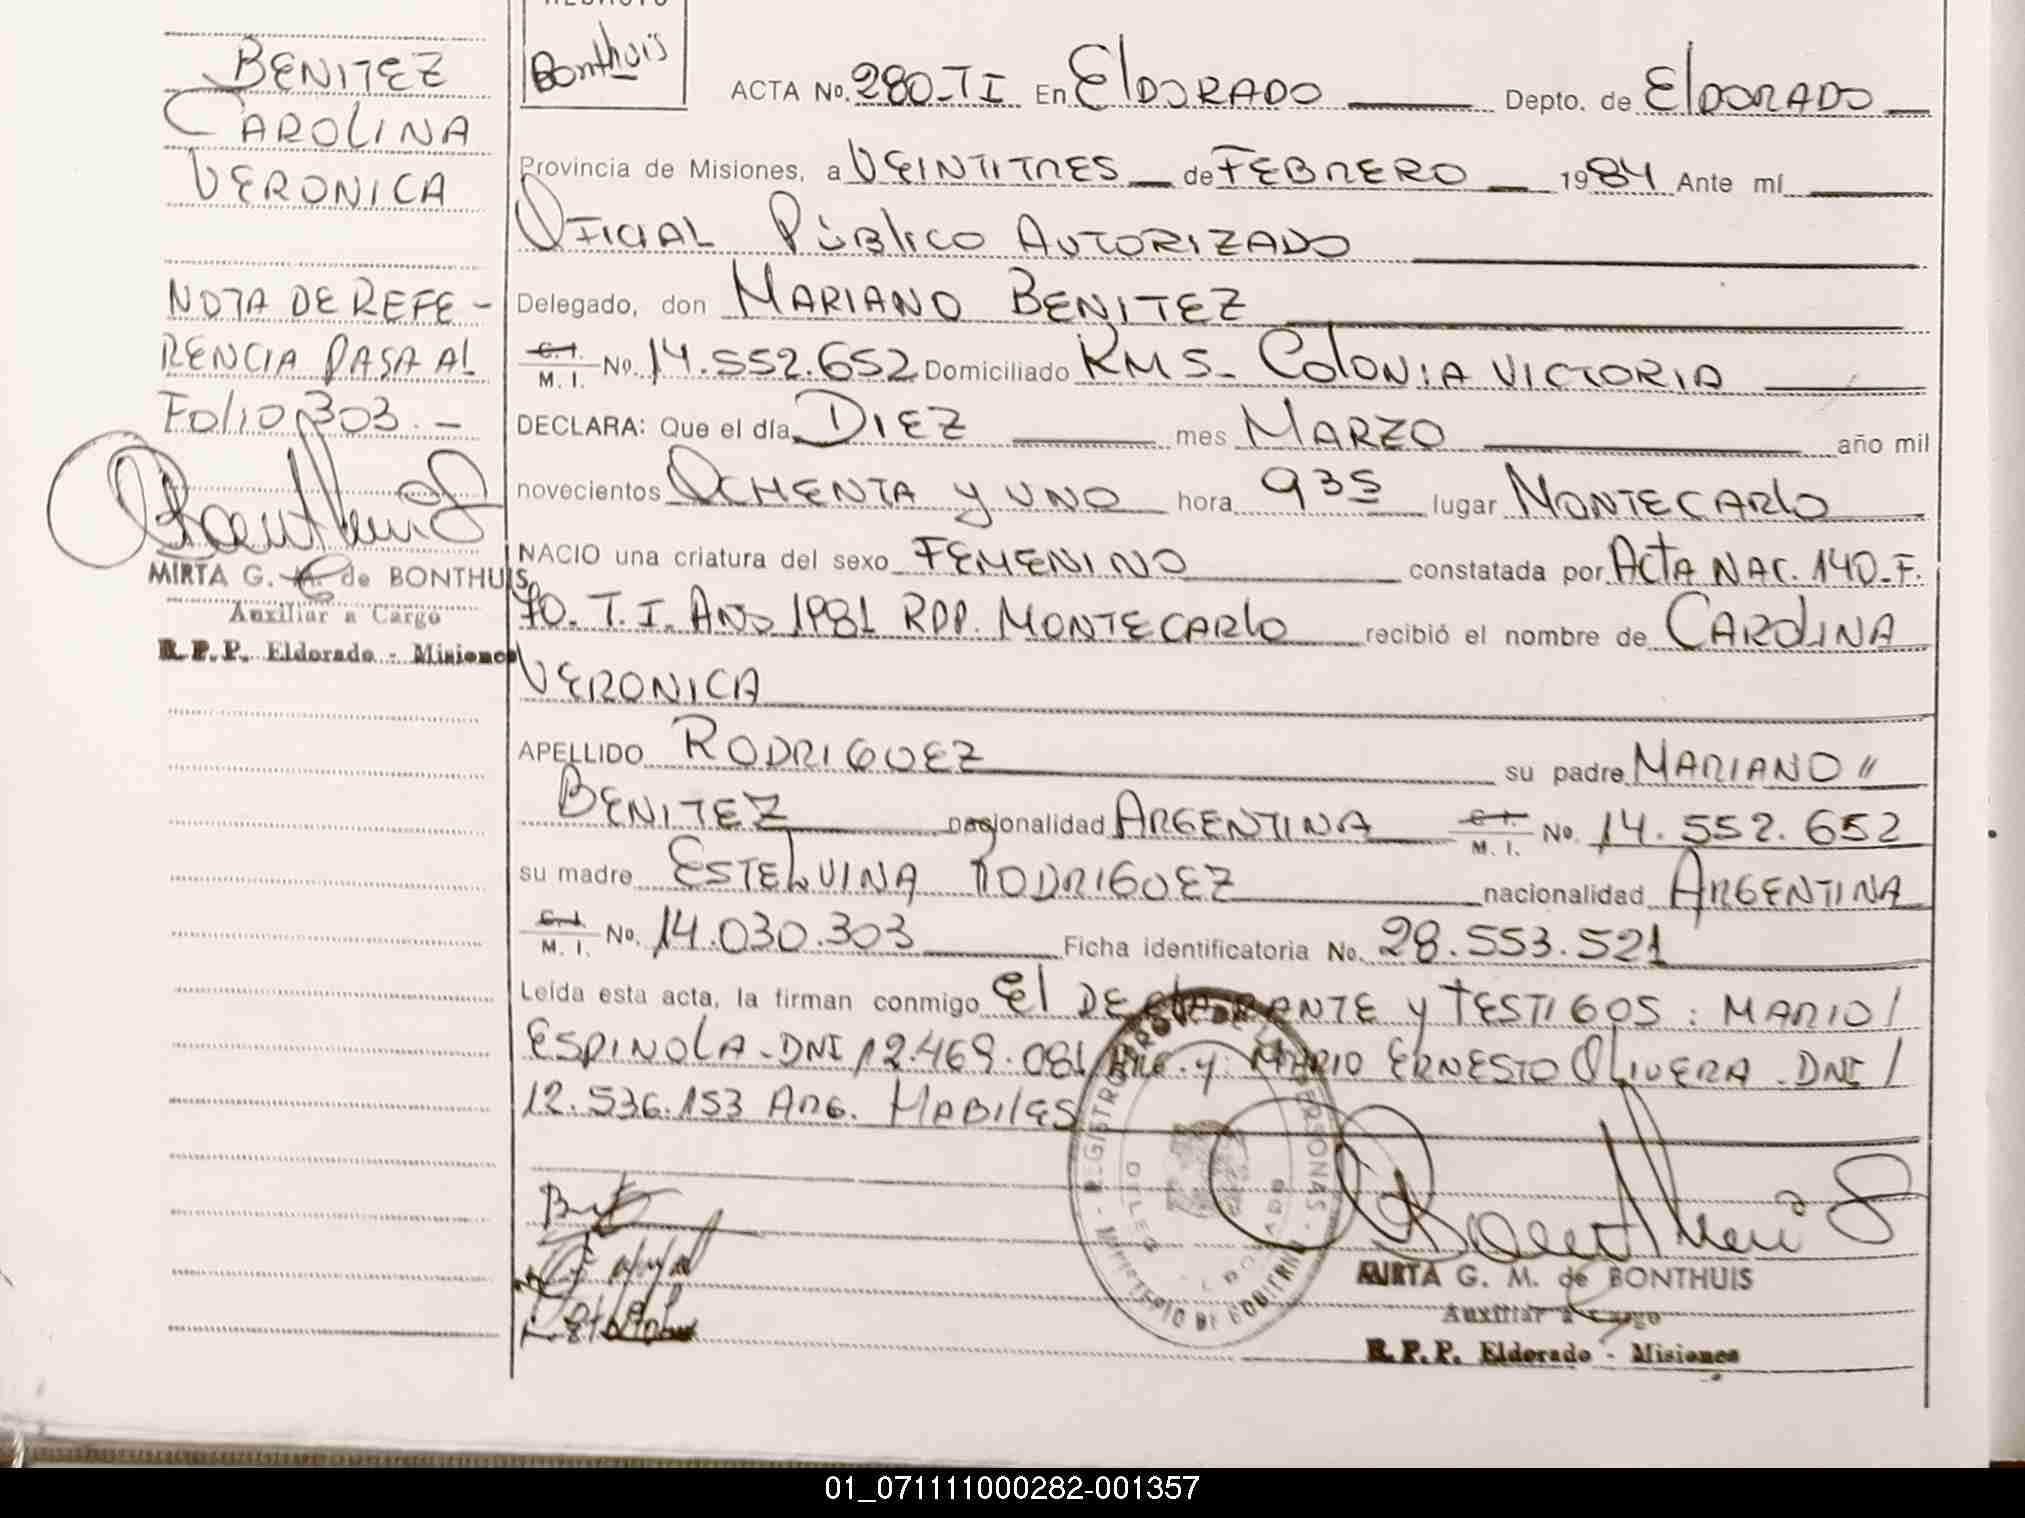 BENITEZ
CAROLINA
VERONICA
NOTA DE REFE-
RENCIA PASA AL
Folio 303.-
MIRTA G. M. de BONTHUIS
Auxiliar a Cargo
R.P.P. Eldorado - Misiones
Bonthuis
ACTA No. 280-TI En ElDORADO Depto. de ElDORADO
Provincia de Misiones, a VEINTITRES de FEBRERO 1984 Ante mí
OFICIAL PÚBlICO AUTORIZADO
Delegado, don MARIANO BENITEZ
C.I. M.I. No. 14.552.652 Domiciliado KM 5- COLONIA VICTORIA
DECLARA: Que el día DIEZ mes MARZO año mil
novecientos OCHENTA y UNO hora 935 lugar MONTECARlO
NACIO una criatura del sexo FEMENINO constatada por ACTA NAC. 140-F.
70. T.I. AÑO 1981 RPP. MONTECARlO recibió el nombre de CAROLINA
VERONICA
APELLIDO RODRIGUEZ su padre MARIANO //
BENITEZ nacionalidad ARGENTINA C.I. M.I. No. 14.552.652
su madre ESTELVINA RODRIGUEZ nacionalidad ARGENTINA
C.I. M.I. No. 14.030.303 Ficha identificatoria No. 28.553.521
Leída esta acta, la firman conmigo El DEClARANTE y TESTIGOS: MARIO/
ESPINOLA-DNI 12.469.081 ARG. y: MARIO ERNESTO OLIVERA-DNI/
12.536.153 ARG. HABILES
REGISTRO PROV. DE LAS PERSONAS - MINISTERIO DE GOBIERNO
ELDORADO
MIRTA G. M. de BONTHUIS
Auxiliar a Cargo
R.P.P. Eldorado - Misiones
01_071111000282-001357